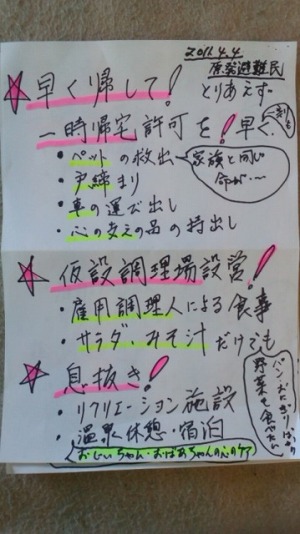 2011.4.4
原発避難民
☆早く帰して!
とりあえず
一時帰宅許可を!早く、
・ペットの救出
家族と同じ
命が…
・戸締まり
・車の運び出し
・心の支えの品の持出し
☆仮設調理場設営!
・雇用調理人による食事
・サラダ・みそ汁だけでも
パン・おにぎりばかり
野菜を食べたい
☆息抜き!
・リクリエーション施設
・温泉休憩・宿泊
(おじいちゃん・おばあちゃんの心のケア)